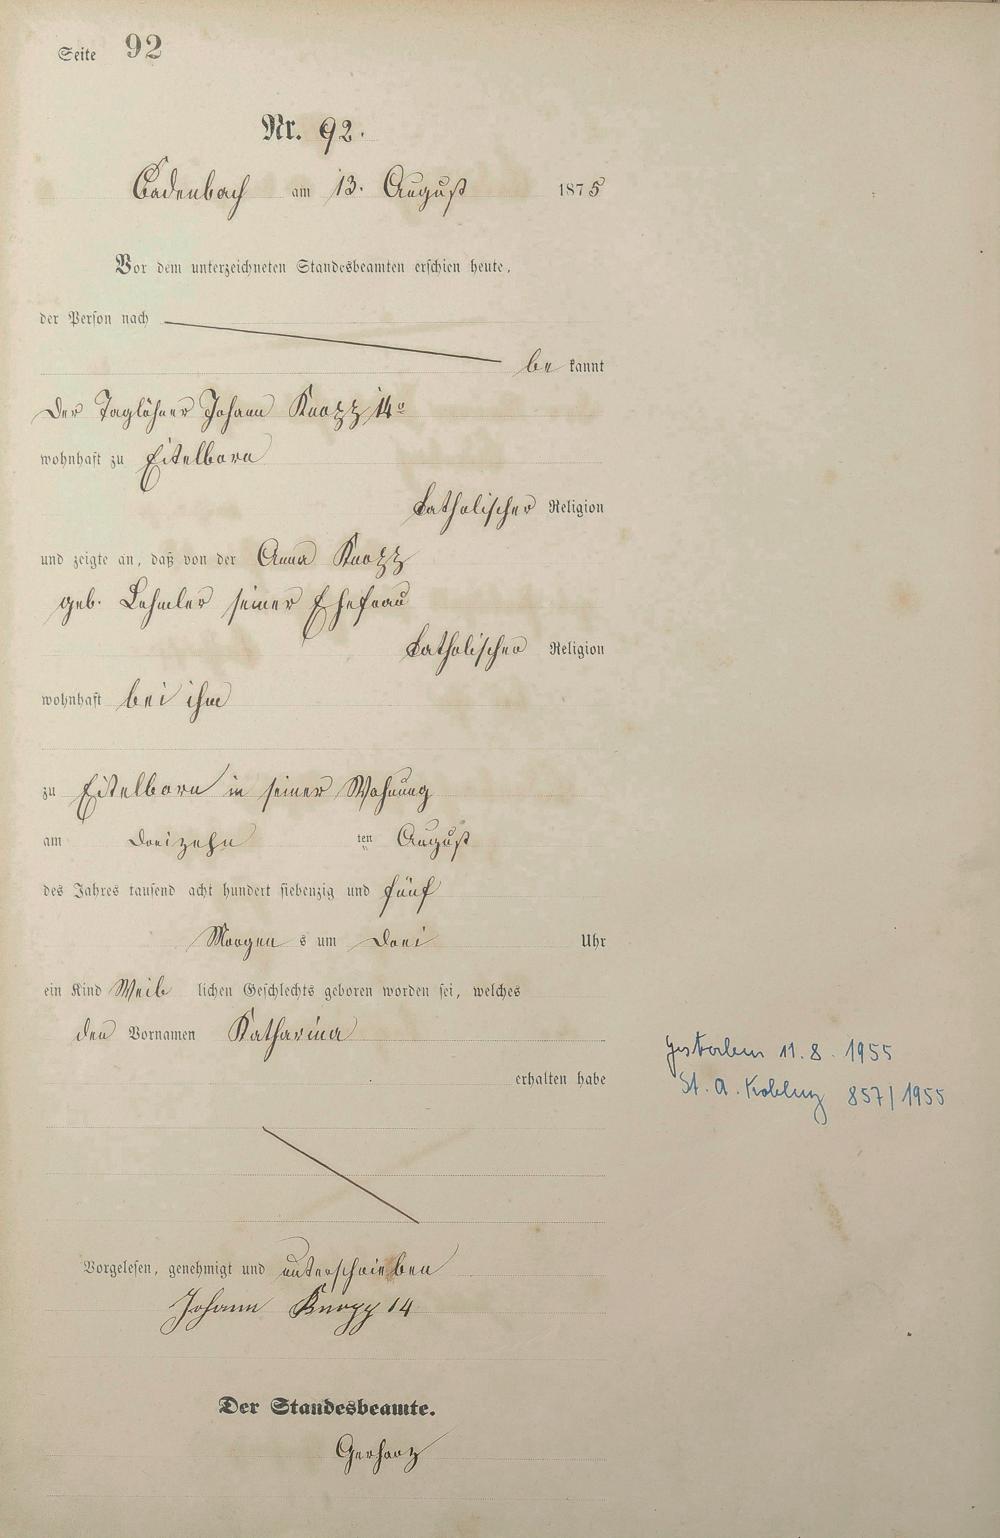 Seite 92
Nr. 92.
Cadenbach am 13. August 1875
Vor dem unterzeichneten Standesbeamten erschien heute,
der Person nach
be kannt
der Taglöhner Johann Knopp 14º
wohnhaft zu Eitelborn
katholischer Religion
und zeigte an, daß von der Anna Knopp
geb. Lehmler seiner Ehefrau
katholischer Religion
wohnhaft bei ihm
zu Eitelborn in seiner Wohnung
am dreizehn ten August
des Jahres tausend acht hundert siebenzig und fünf
Morgen s um drei Uhr
ein Kind Weib lichen Geschlechts geboren worden sei, welches
den Vornamen Katharina
erhalten habe
gestorben 11.8.1955
St. A. Koblenz 857/1955
Vorgelesen, genehmigt und unterschrieben
Johann Knopp 14
Der Standesbeamte.
Gerharz